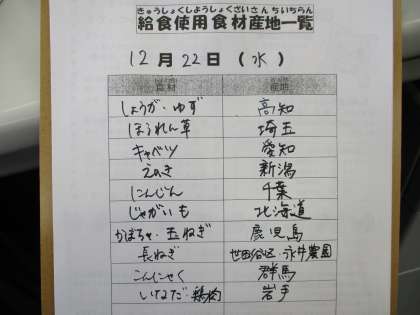 きゅうしょくしようしょくざいさんちいちらん
給食使用食材産地一覧
12月22日(水)
食材 産地
しょうが・ゆず 高知
ほうれん草 埼玉
キャベツ 愛知
えのき 新潟
にんじん 千葉
じゃがいも 北海道
かぼちゃ・玉ねぎ 鹿児島
長ねぎ 世田谷区・永井農園
こんにゃく 群馬
いなだ・鶏肉 岩手